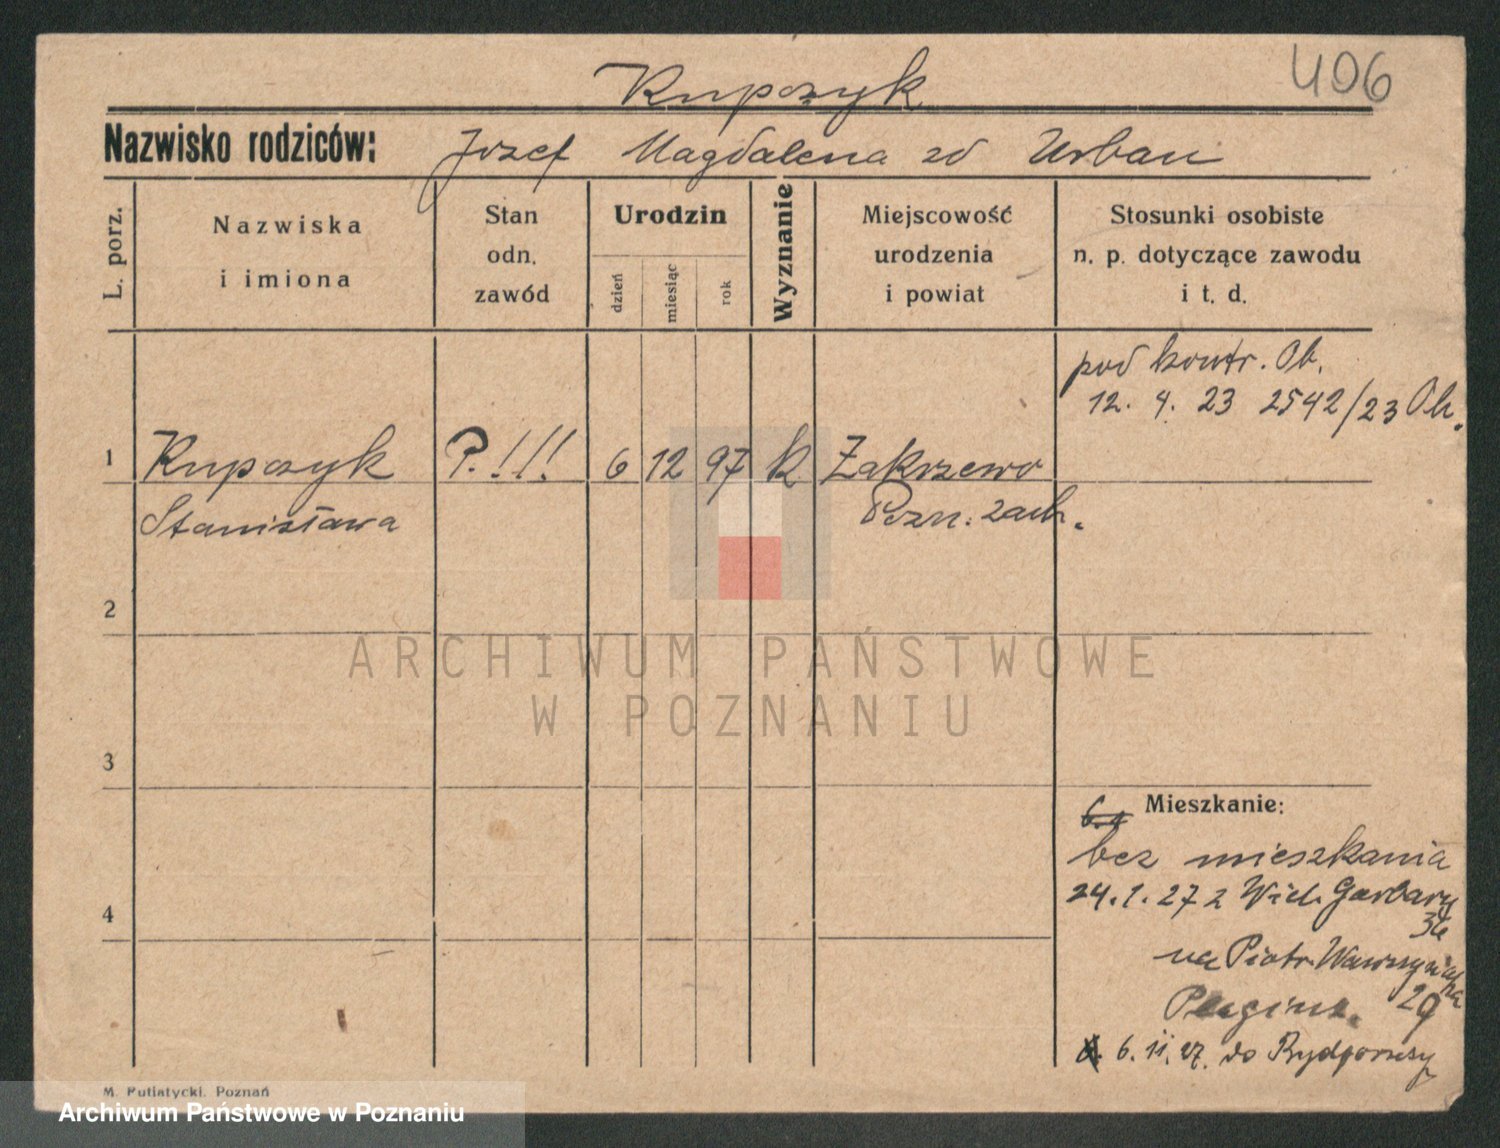 406
Kupczyk
Nazwisko rodziców: Jozef Magdalena zd Urban
L. porz.
Nazwiska
i imiona
Stan
odn.
zawód
Urodzin
dzień
miesiąc
rok
Wyznanie
Miejscowość
urodzenia
i powiat
Stosunki osobiste
n. p. dotyczące zawodu
i t. d.
pod kontr. Ob.
12. 4. 23 2542/23 Ob.
1 Kupczyk P. !!! 6 12 97 k Zakrzewo
Stanisława Pozn. zach.
2
ARCHIWUM PAŃSTWOWE
W POZNANIU
3
Mieszkanie:
bez mieszkania
24. 1. 27 z Wiel. Garbary
36
na Piotr. Wawrzyniaka
29
6. 11. 27. do Bydgoszczy
4
M. Putiatycki. Poznań
Archiwum Państwowe w Poznaniu